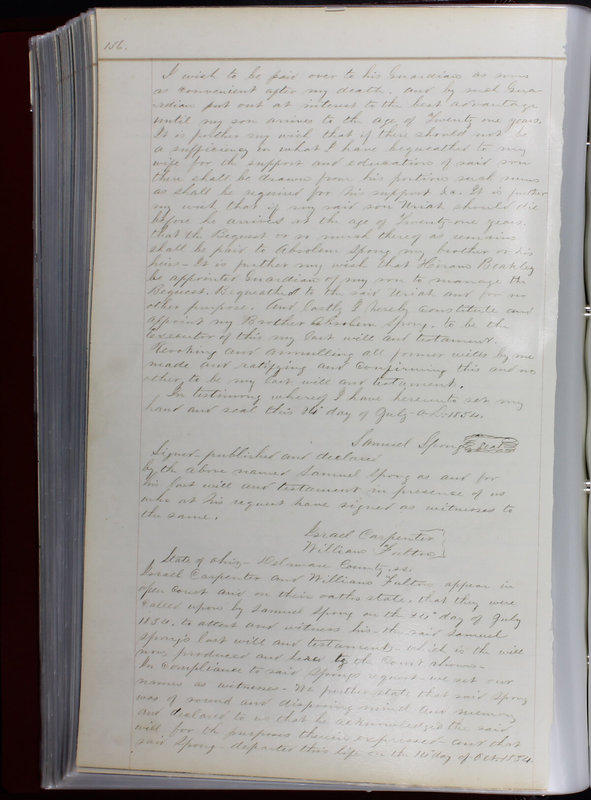 156.
I wish to be paid over to his Guardian as soon
as convenient after my death. and by such Gua-
rdian put out at interest to the best advantage
until my son arrives to the age of Twenty one years.
It is further my wish that if there should not be
a sufficiency in what I have bequeathed to my
wife for the support and education of said son
there shall be drawn from his portion such sums
as shall be required for his support &a. It is further
my will that if my said son Uriah should die
before he arrives at the age of Twenty-one years.
that the Bequest or so much thereof as remains
shall be paid to Absolem Spong my brother or his
heirs - It is further my wish that Hiram
be appointed Guardian of my son to manage the
Bequest. Bequeathed to the said Uriah and for no
other purpose. And lastly I hereby constitute and
appoint my Brother Absolem Spong. to be the
Executor of this my last will and testament.
Revoking and annulling all former wills by me
made and ratifying and confirming this and no
other to be my last will and testament.
In testimony whereof I have hereunto set my
hand and seal this 24" day of July A.D. 1854.
Samuel Spong seal
Signed published and declared
by the above named Samuel Spong as and for
his last will and testament in presence of us
who at his request have signed as witnesses to
the same.
Israel Carpenter
William Fulton
State of Ohio - Delaware County. ss.
Israel Carpenter and William Fulton appear in
open court and on their oaths state. that they were
called upon by Samuel Spong on the 24" day of July
1854. to attest and witness his the said Samuel
Spong's last will and testament - which is the will
now produced and here to the court shown -
In compliance to said Spong's request we set our
names as witnesses - We further state that said Spong
was of sound and disposing mind and memory
and declared to us that he acknowledged the said
will for the purposes therein expressed and that
said Spong departed this life on the day of Oct. 1854.